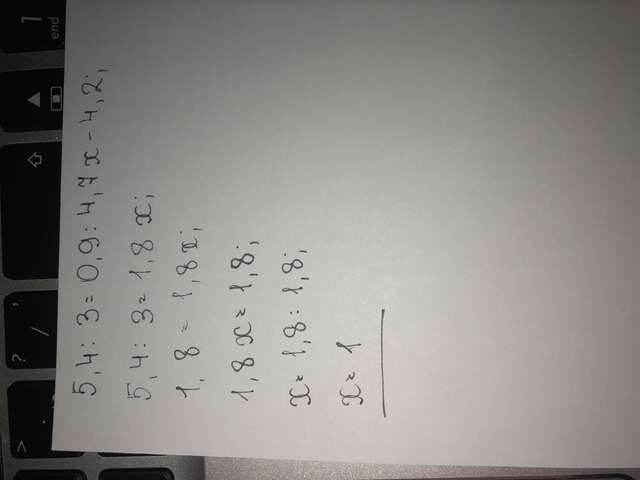 > . ? , / ⇧ ▲ 1 end
5,4 : 3 = 0,9 : 4,7x - 4,2;
5,4 : 3 = 1,8x;
1,8 = 1,8x;
1,8x = 1,8;
x = 1,8 : 1,8;
x = 1